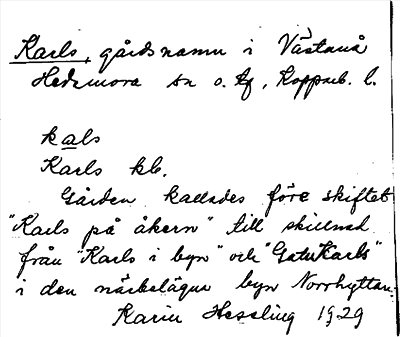 Karls, gårdsnamn i Västanå
Hedemora sn o. tg, Kopparb. l.
kals
Karls kb.
Gården kallades före skiftet
"Karls på åkern" till skillnad
från "Karls i byn" och "GatuKarls"
i den närbelägna byn Norrhyttan.
Karin Hessling 1929